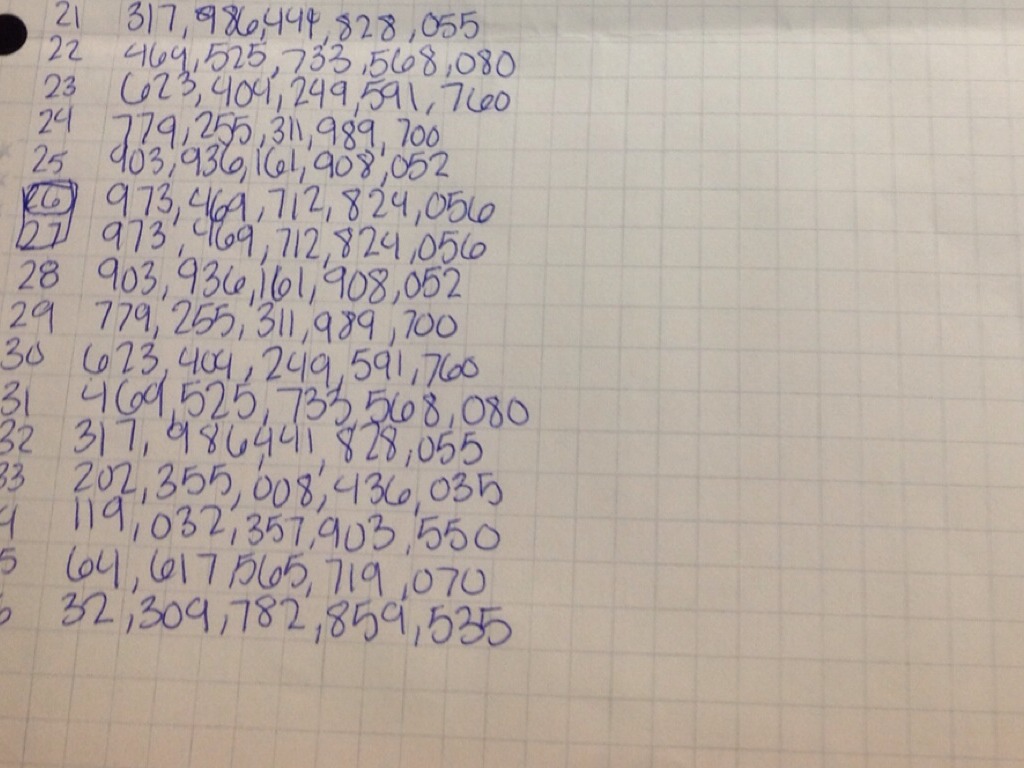 21 317,986,441,828,055
22 469,525,733,568,080
23 623,404,249,591,760
24 779,255,311,989,700
25 903,936,161,908,052
26 973,469,712,824,056
27 973,469,712,824,056
28 903,936,161,908,052
29 779,255,311,989,700
30 623,404,249,591,760
31 469,525,733,568,080
32 317,986,441,828,055
33 202,355,008,436,035
4 119,032,357,903,550
5 64,617,565,719,070
32,309,782,859,535